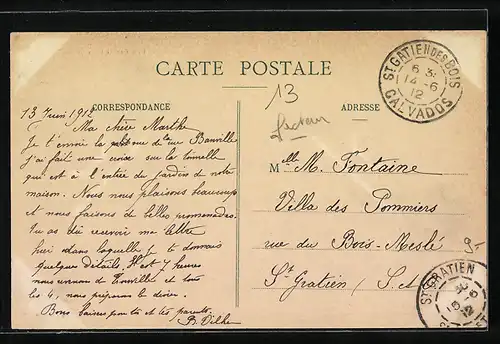 CARTE POSTALE
CORRESPONDANCE
ADRESSE
13
facteur
ST GATIEN DES BOIS
6 3.
14 -6
12
CALVADOS
13 Juin 1912
Ma chère Marthe
Je t'envoie la rue Banville
J'ai fait une croix sur la tonnelle
qui est à l'entrée du jardin de notre
maison. Nous nous plaisons beaucoup
et nous faisons de belles promenades.
Tu as dû recevoir ma lettre
hier dans laquelle je te donnais
quelques détails. Il est 7 heures
nous venons de Trouville et tous
les 4, nous préparons le dîner.
Bons baisers pour toi et tes parents
B. Dilhe
Mlle M. Fontaine
Villa des Pommiers
rue du Bois-Meslé
St Gratien (S. et
9-
ST GRATIEN